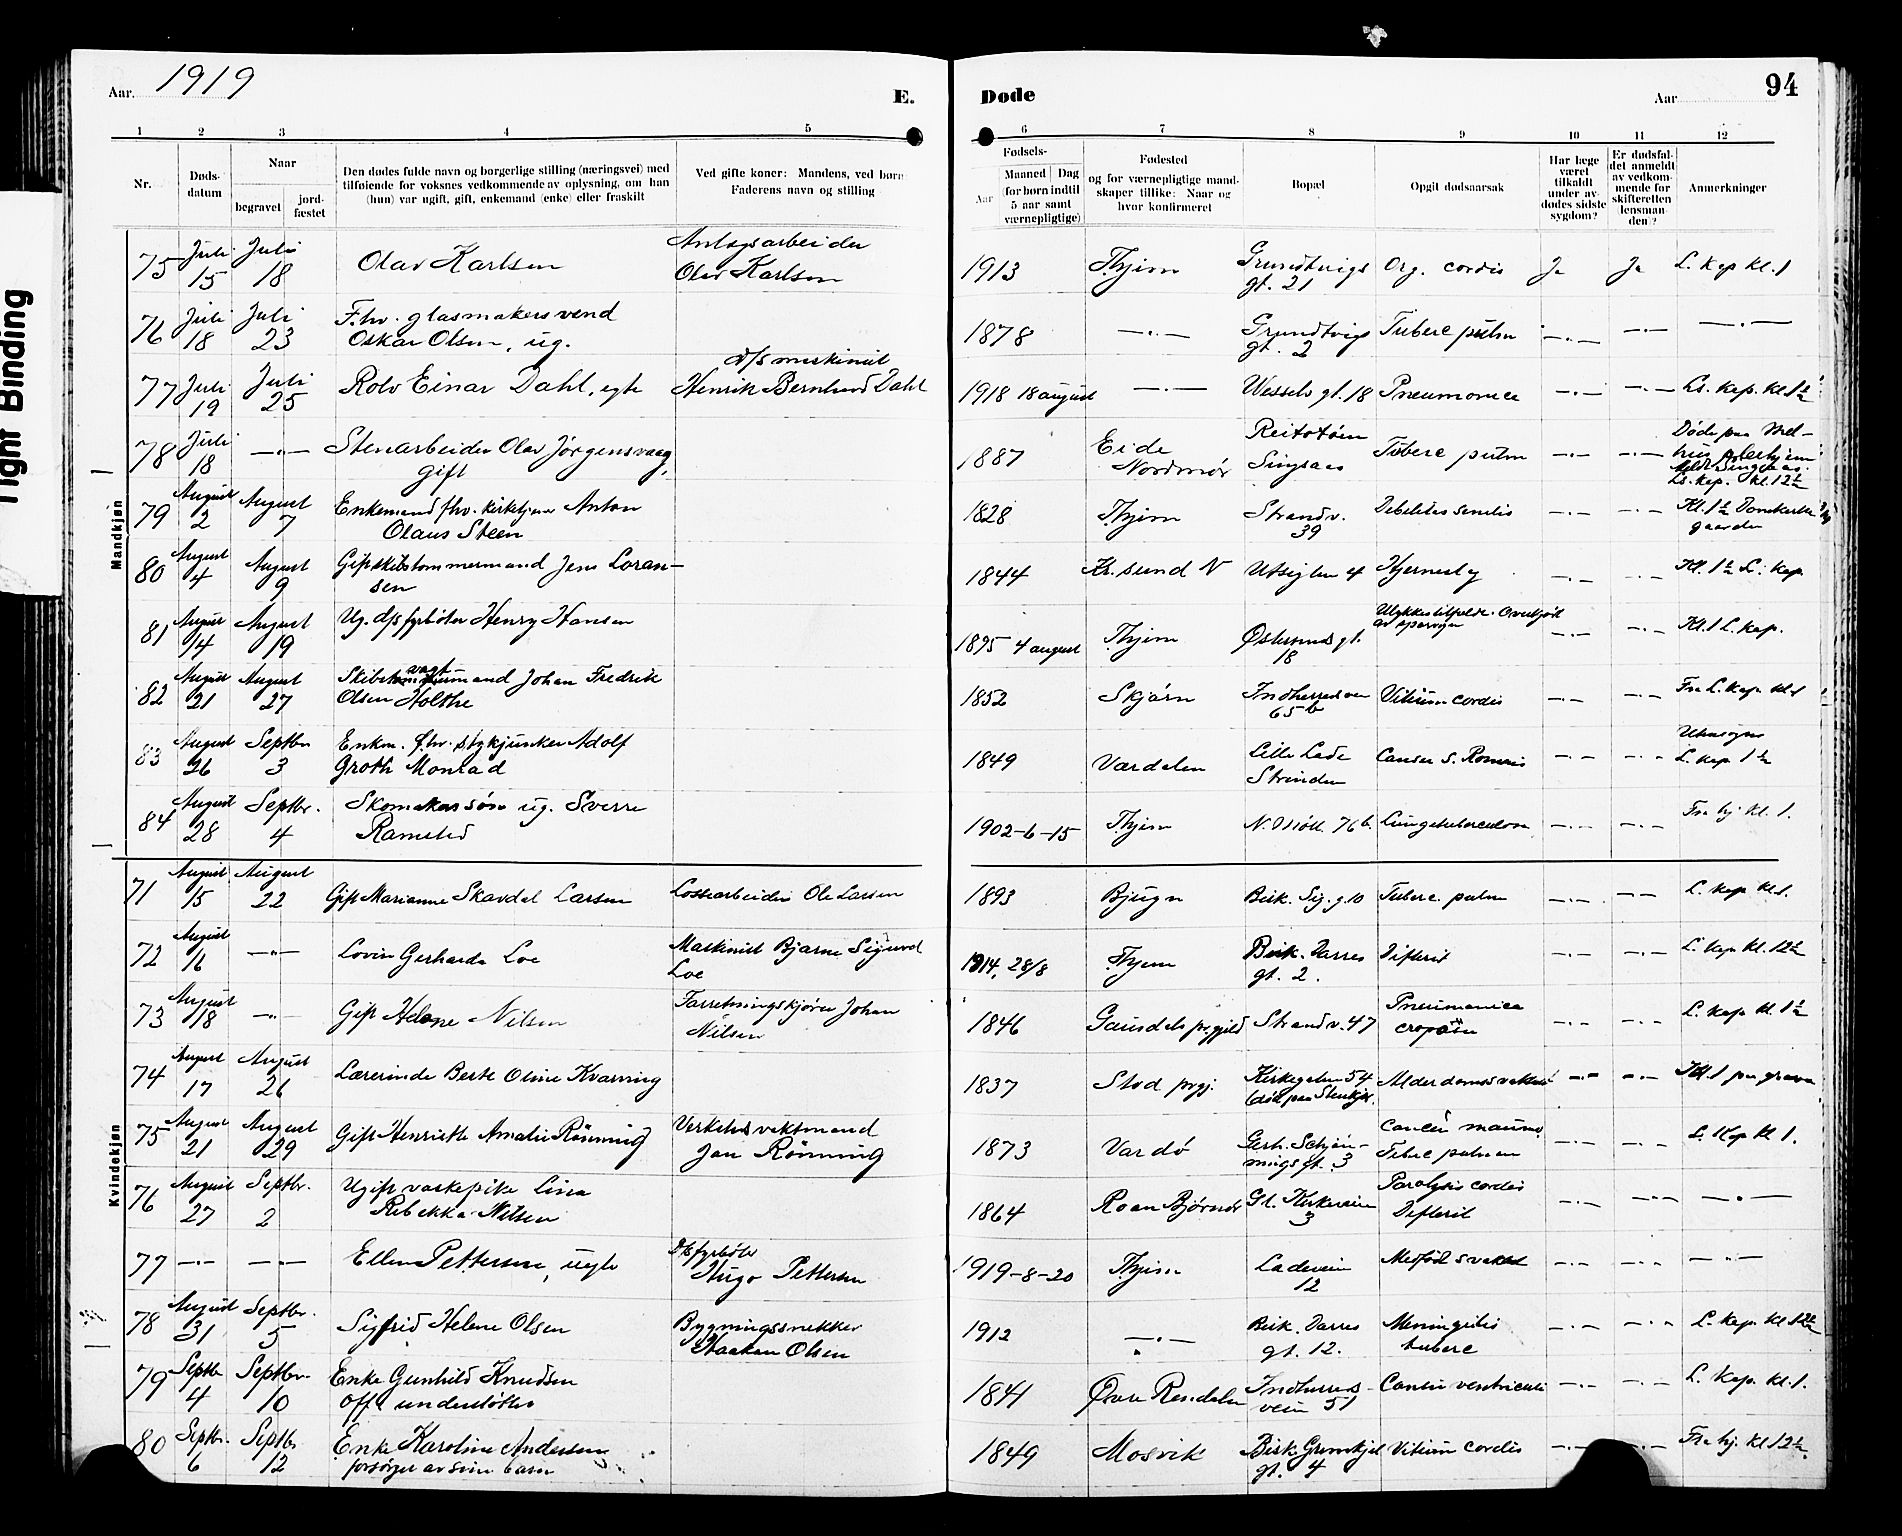 Tight Binding
Aar. 1919
E.
Døde
Aar
94
1 2 3 4 5 6 7 8 9 10 11 12
Nr.
Døds-
datum
Naar
begravet
jord-
fæstet
Den dødes fulde navn og borgerlige stilling (næringsvei) med
tilføiende for voksnes vedkommende av oplysning, om han
(hun) var ugift, gift, enkemand (enke) eller fraskilt
Ved gifte koner: Mandens, ved børn
Faderens navn og stilling
Fødsels-
Aar
Maaned Dag
(for børn indtil
5 aar samt
værnepligtige)
Fødested
og for værnepligtige mand-
skaper tillike: Naar og
hvor konfirmeret
Bopæl
Opgit dødsaarsak
Har læge
været
tilkaldt
under av-
dødes sidste
sygdom?
Er dødsfal-
det anmeldt
av vedkom-
mende for
skifteretten
(lensman-
den)?
Anmerkninger
Mandkjøn
75 Juli 15 Juli 18 Olav Karlsen Anlægsarbeider
Olav Karlsen 1913 Thjem Grundtvigs
gt. 21 Org. cordis Ja Ja L. Kap kl. 1
76 Juli 18 Juli 23 F.hv. glasmakersvend
Oskar Olsen, ug. 1878 —"— Grundtvigs
gt. 2 Tuberc pulm —"— —"— —"—
77 Juli 19 Juli 25 Rolv Einar Dahl, egte d/s maskinist
Henrik Bernhard Dahl 1918 18 august —"— Wessels gt. 18 Pneumonica —"— —"— Ls. kap. kl. 1½
78 Juli 18 —"— Stenarbeider Olav Jørgensvaag,
gift 1887 Eide
Nordmør Reitstøen
Singsaas Tuberc pulm —"— —"— Døde paa Mel-
hus pleiehjem
Ls. kap. kl. 12½
79 August 2 August 7 Enkemand fhv. kirketjener Anton
Olaus Steen 1828 Thjem Strandv.
39 Debelitas senilis —"— —"— Kl. 1½ Domkirke
gaarden
80 August 4 August 9 Gift skibstømmermand Jens Loran-
sen 1844 Kr. sund N Utsigten 4 Hjerneslag —"— —"— Kl. 1½ L. kap
81 August 14 August 19 Ug. d/s fyrbøter Henry Hansen 1895 4 august Thjem Østersunds gt.
18 Ulykkestilfælde. Overkjørt
av sporvogn —"— —"— Kl. 1 L. kap.
82 August 21 August 27 Skibs vagtmand Johan Fredrik
Olsen Holthe 1852 Skjørn Indherredsvn
65 b Vitium cordis —"— —"— Fra L. Kap kl. 1
83 August 26 Septbr 3 Enkm. f.hv. stykjunker Adolf
Groth Monrad 1849 Værdalen Lille Lade
Strinden Cancer S. Romani —"— —"— Utensogns
L. kap 1½
84 August 28 Septbr. 4 Skomakersøn ug. Sverre
Ramstad 1902-6-15 Thjem N. Møll. 76 b. Lungetuberculose —"— —"— Fra hj. kl. 1.
Kvindekjøn
71 August 15 August 22 Gift Marianne Skavdal Larsen Lossearbeider Ole Larsen 1893 Bjugn Bisk. Sig. g. 10 Tuberc. pulm —"— —"— L. kap kl. 1.
72 August 16 —"— Lovise Gerharda Loe Maskinist Bjarne Sigurd
Loe 1914, 28/8 Thjem Bisk. Darres
gt. 2. Difterit —"— —"— L. kap kl. 12½
73 August 18 —"— Gift Helene Nilsen Forretningskjører Johan
Nilsen 1846 Gausdals prgjeld Strandv. 47 Pneumonica
croposa —"— —"— L. kap kl. 1½
74 August 17 August 26 Lærerinde Berte Oline Kvarving 1837 Stod prgj. Kirkegaten 54
(død paa Stenkjær. Alderdomssvakhet —"— —"— Kl. 1 paa graven
75 August 21 August 29 Gift Henriette Amalie Rønning Verkstedsvaktmand
Jon Rønning 1873 Vardø Gerh. Schøn-
nings gt. 3 Cancer mamma
Tuberc pulmon —"— —"— L. Kap kl 1.
76 August 27 Septbr. 2 Ugift vaskepike Lina
Rebekka Nilsen 1864 Roan Bjørnør Gl. Kirkevei
3 Paralysis cordis
Difterit —"— —"— —"—
77 —"— —"— Ellen Pettersen, uegte D/S fyrbøter
Hugo Pettersen 1919-8-20 Thjem Ladevein
12 Medfød svakhed —"— —"— —"—
78 August 31 Septbr. 5 Sigfrid Helene Olsen Bygningssnekker
Haakon Olsen 1912 —"— Bisk. Darres
gt. 12. Meningitis
tuberc —"— —"— L. kap kl 12½
79 Septbr 4 Septbr. 10 Enke Gunhild Knudsen
Off. understøttes 1841 Øvre Rendalen Indherreds-
vein 51 Cancer ventriculi —"— —"— L. Kap. kl. 1.
80 Septbr. 6 Septbr 12 Enke Karoline Andersen
forsørget av sine barn 1849 Mosvik Bisk. Grimkjel
gt. 4 Vitium cordis —"— —"— Fra hj. kl 12½